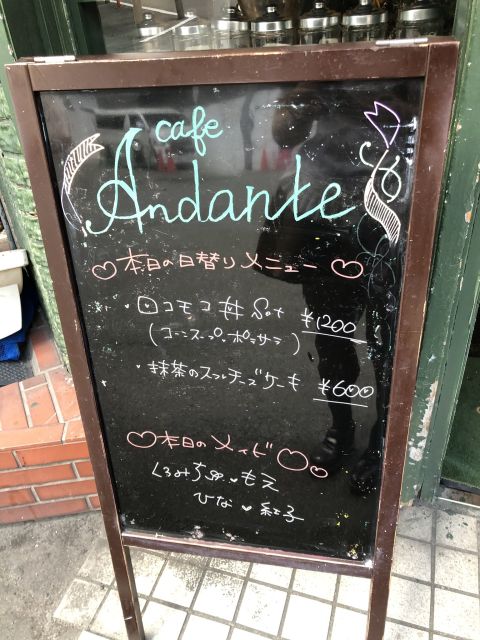 cafe
Andante
♡本日の日替りメニュー♡
・ロコモコ丼 Set ¥1200
(コーンスープ・ポテサラ)
・抹茶のスフレチーズケーキ ¥600
♡本日のメイド♡
くるみ もえ
ひな ♥ 紅子